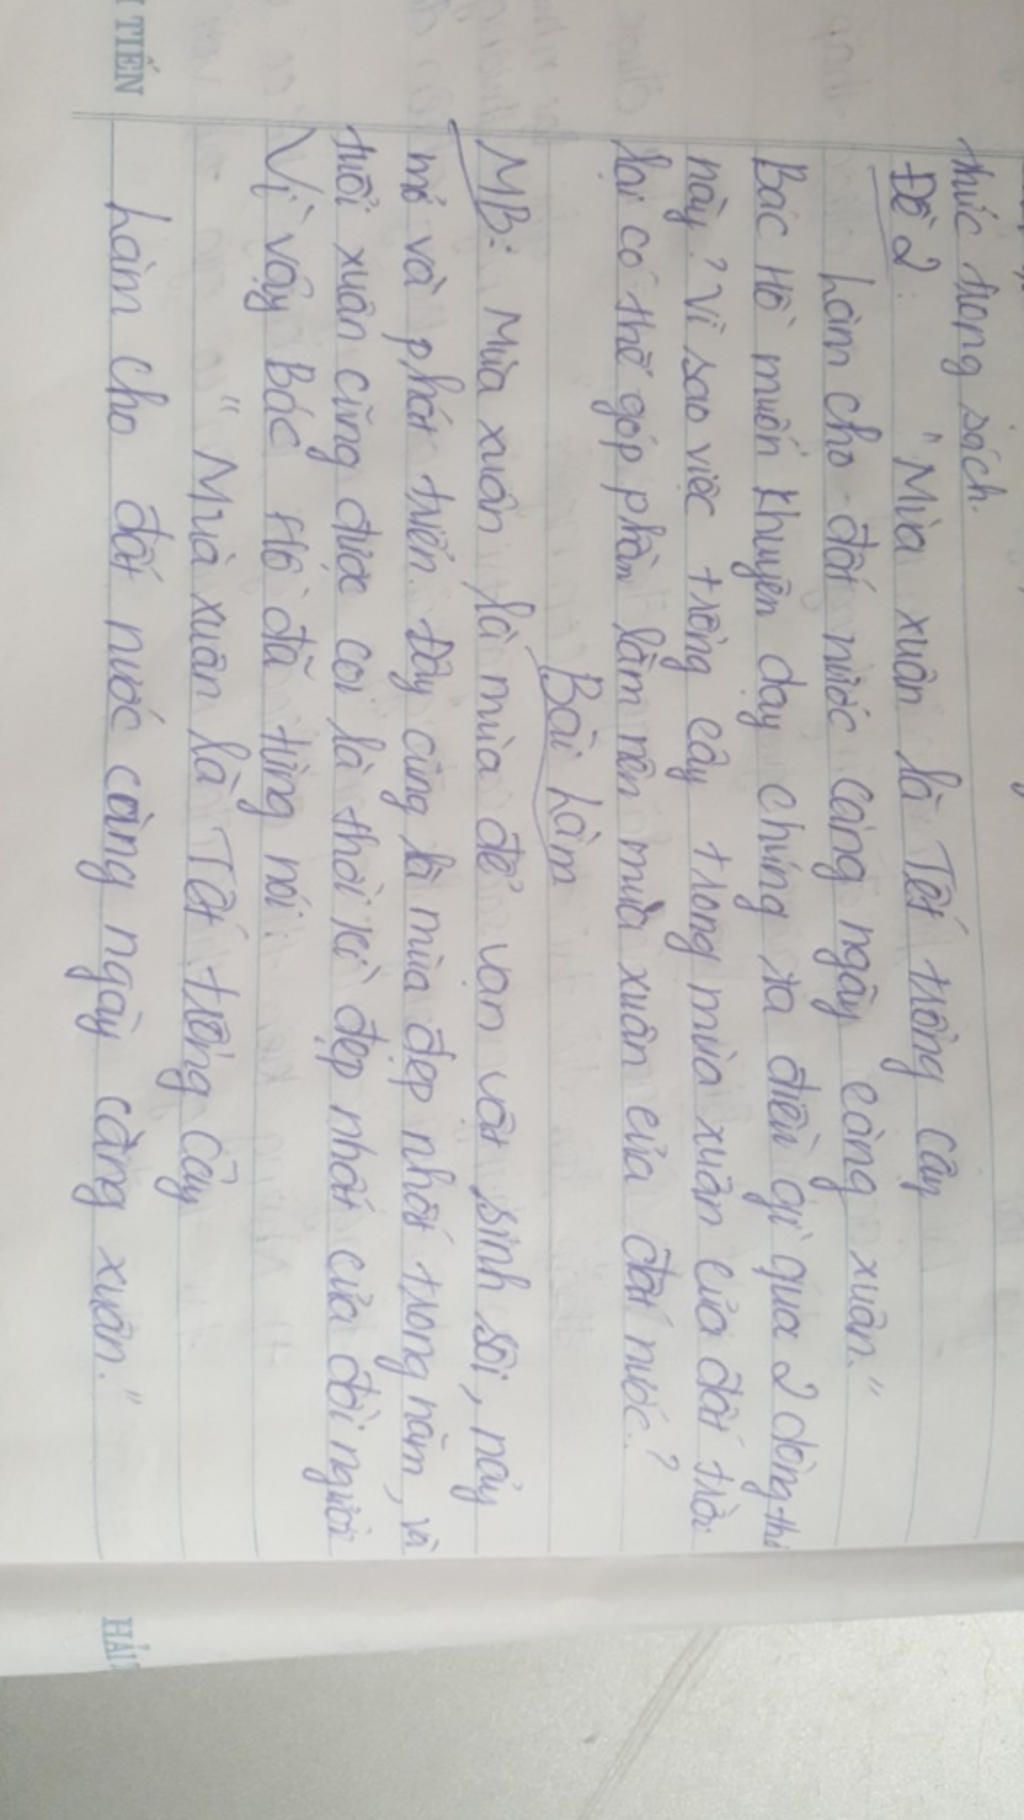 thức trong sách.
Đề 2: "Mùa xuân là Tết trồng cây
Làm cho đất nước càng ngày càng xuân."
Bác Hồ muốn khuyên dạy chúng ta điều gì qua 2 dòng thơ
này? Vì sao việc trồng cây trong mùa xuân của đất trời
lại có thể góp phần làm nên mùa xuân của đất nước?
Bài Làm
MB: Mùa xuân là mùa để vạn vật sinh sôi, nảy
mở và phát triển. Đây cũng là mùa đẹp nhất trong năm, và
tuổi xuân cũng được coi là thời kì đẹp nhất của đời người
Vì vậy Bác Hồ đã từng nói:
"Mùa xuân là Tết trồng cây
Làm cho đất nước càng ngày càng xuân."
TIẾN
HẢI